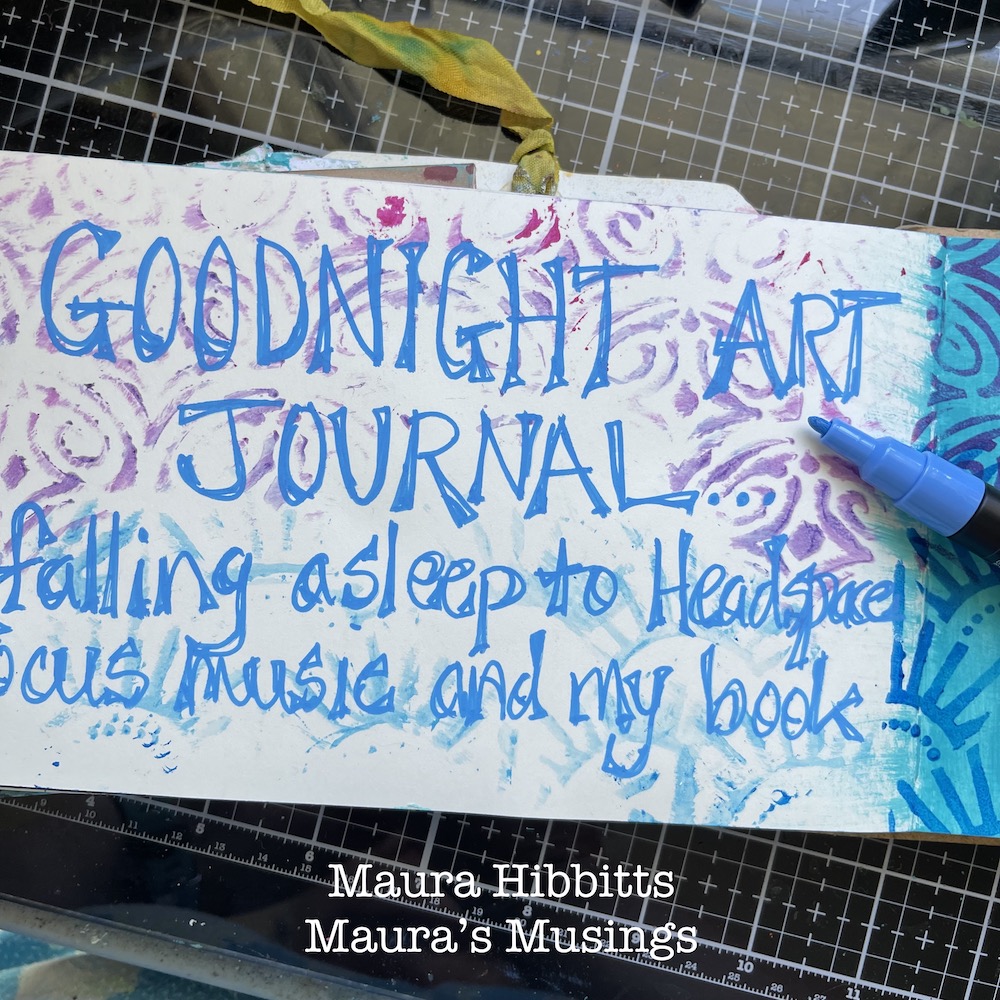 GOODNIGHT ART
JOURNAL...
falling asleep to Headspace
focus music and my book
4
5
6
8
10
11
Maura Hibbitts
Maura's Musings